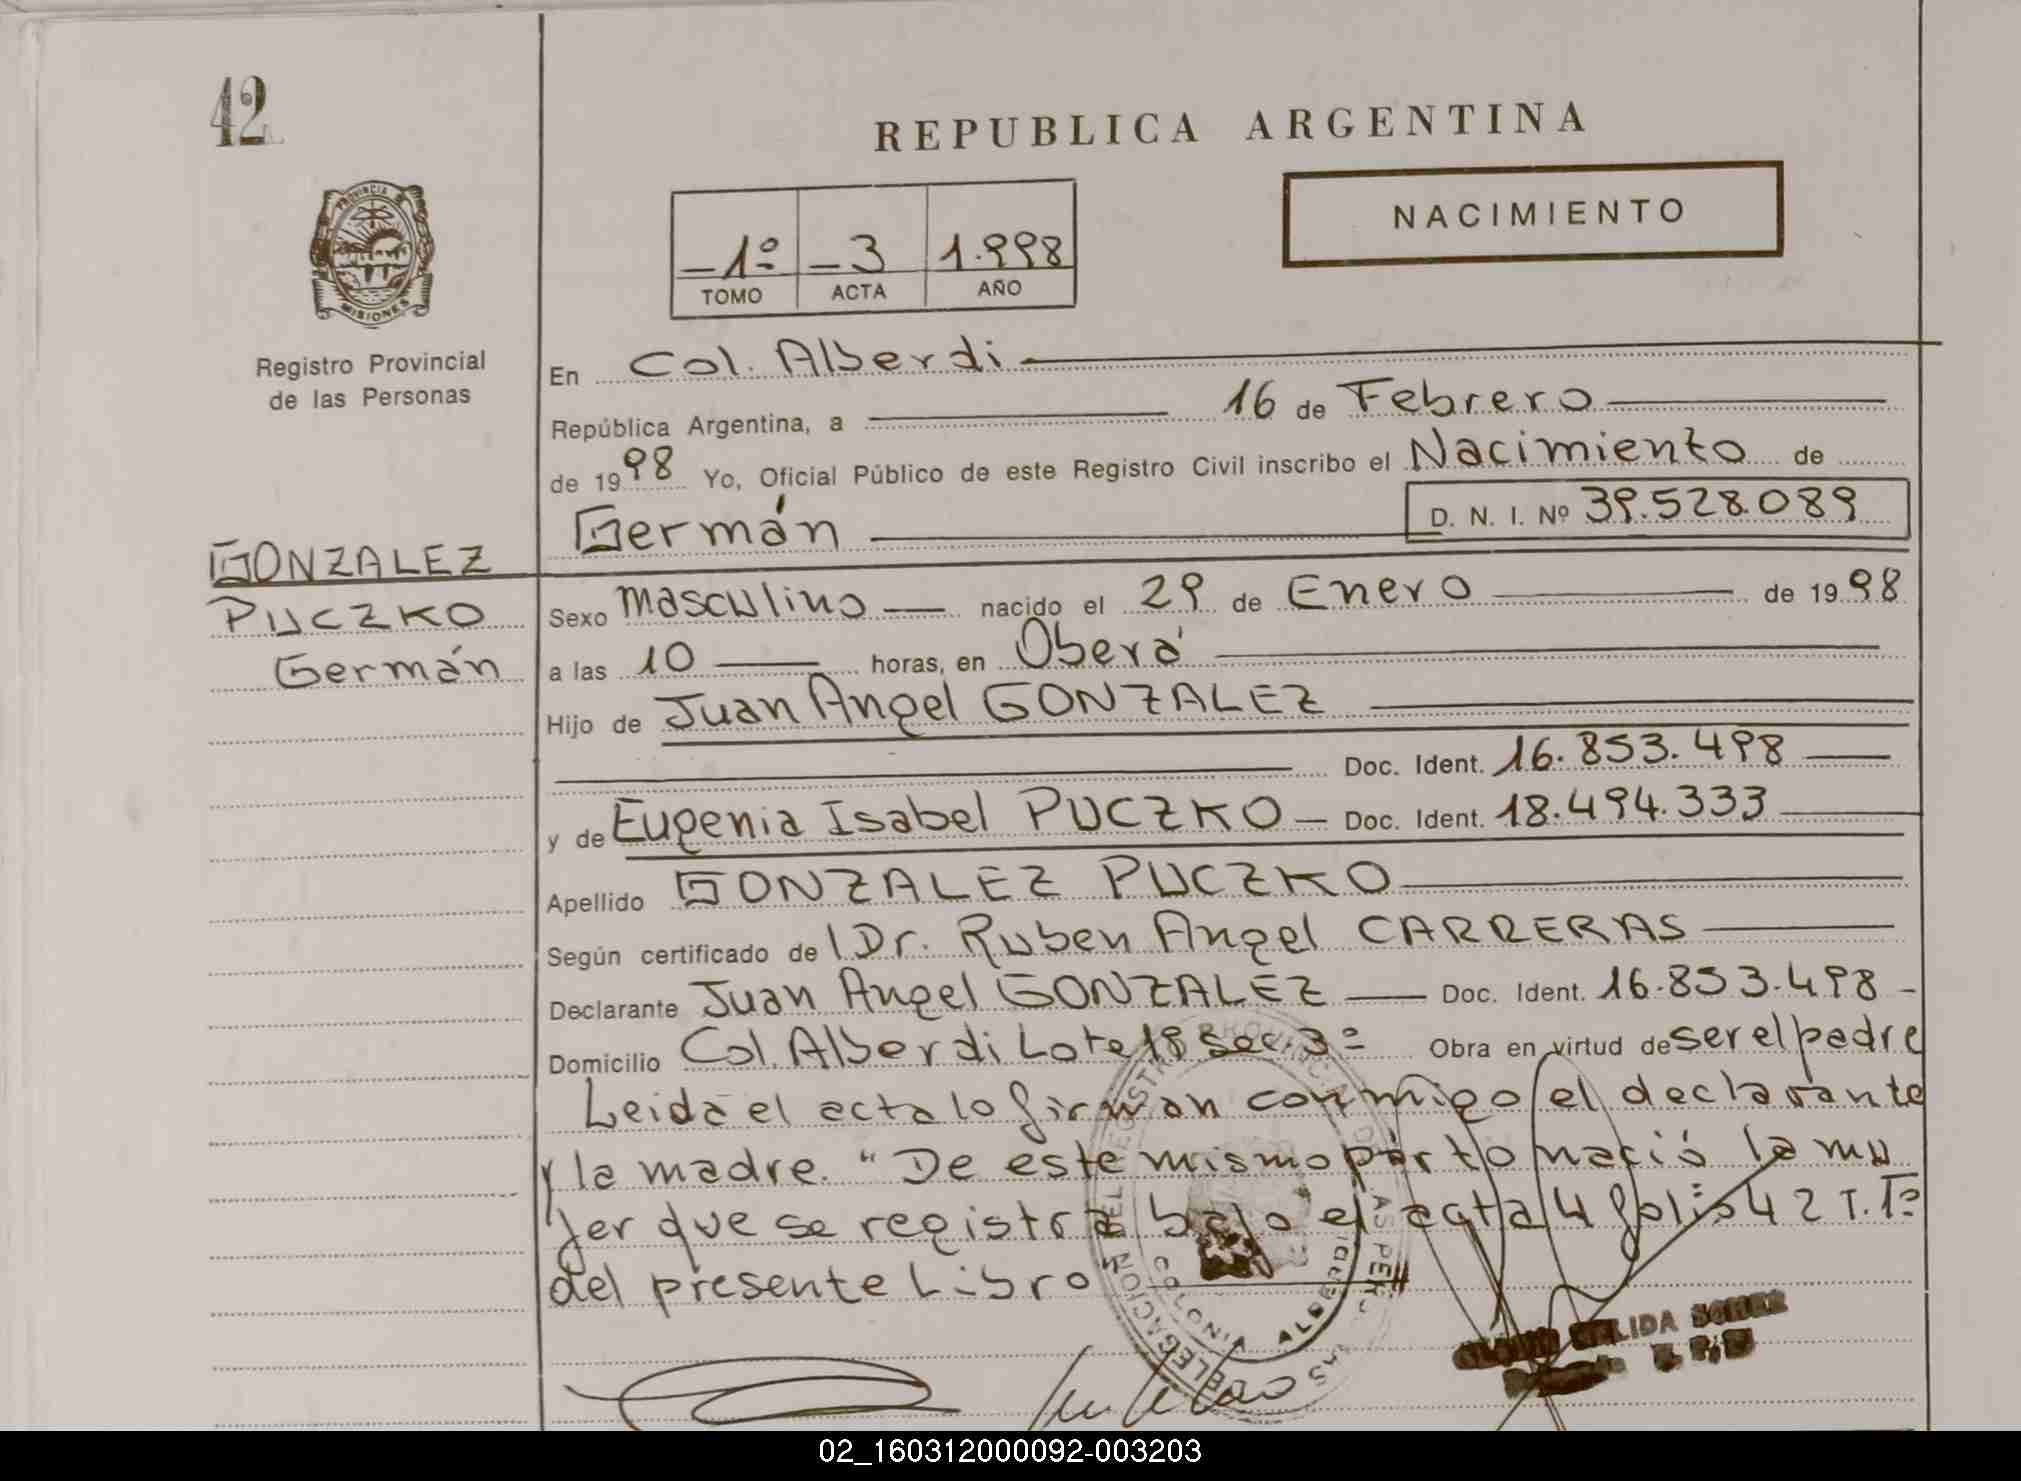 42
REPUBLICA ARGENTINA
NACIMIENTO
PROVINCIA
MISIONES
1º 3 1.998
TOMO ACTA AÑO
Registro Provincial
de las Personas
En Col. Alberdi
República Argentina, a 16 de Febrero
de 1998 Yo, Oficial Público de este Registro Civil inscribo el Nacimiento de
Germán D. N. I. Nº 39.528.089
GONZALEZ
PUCZKO
Germán
Sexo masculino nacido el 29 de Enero de 1998
a las 10 horas, en Oberá
Hijo de Juan Angel GONZALEZ
Doc. Ident. 16.853.498
y de Eugenia Isabel PUCZKO Doc. Ident. 18.494.333
Apellido GONZALEZ PUCZKO
Según certificado de Dr. Ruben Angel CARRERAS
Declarante Juan Angel GONZALEZ Doc. Ident. 16.853.498
Domicilio Col. Alberdi Lote 18 Sec. 3º Obra en virtud de ser el padre
Leida el acta lo firman conmigo el declarante
y la madre. "De este mismo parto nació la mu
jer que se registra bajo el acta 4 folio 42 T. 1º
del presente Libro"
COLONIA ALBERDI
02_160312000092-003203